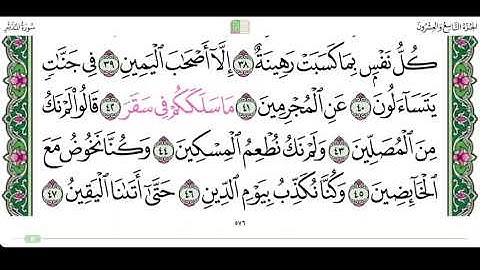 سُورَةُ المُدَّثِّرِ الجُزْءُ التَّاسِعُ وَالعِشْرُونَ
كُلُّ نَفْسٍۭ بِمَا كَسَبَتْ رَهِينَةٌ ٣٨ إِلَّآ أَصْحَٰبَ ٱلْيَمِينِ ٣٩ فِى جَنَّٰتٍ
يَتَسَآءَلُونَ ٤٠ عَنِ ٱلْمُجْرِمِينَ ٤١ مَا سَلَكَكُمْ فِى سَقَرَ ٤٢ قَالُوا۟ لَمْ نَكُ
مِنَ ٱلْمُصَلِّينَ ٤٣ وَلَمْ نَكُ نُطْعِمُ ٱلْمِسْكِينَ ٤٤ وَكُنَّا نَخُوضُ مَعَ
ٱلْخَآئِضِينَ ٤٥ وَكُنَّا نُكَذِّبُ بِيَوْمِ ٱلدِّينِ ٤٦ حَتَّىٰٓ أَتَىٰنَا ٱلْيَقِينُ ٤٧
٥٧٦